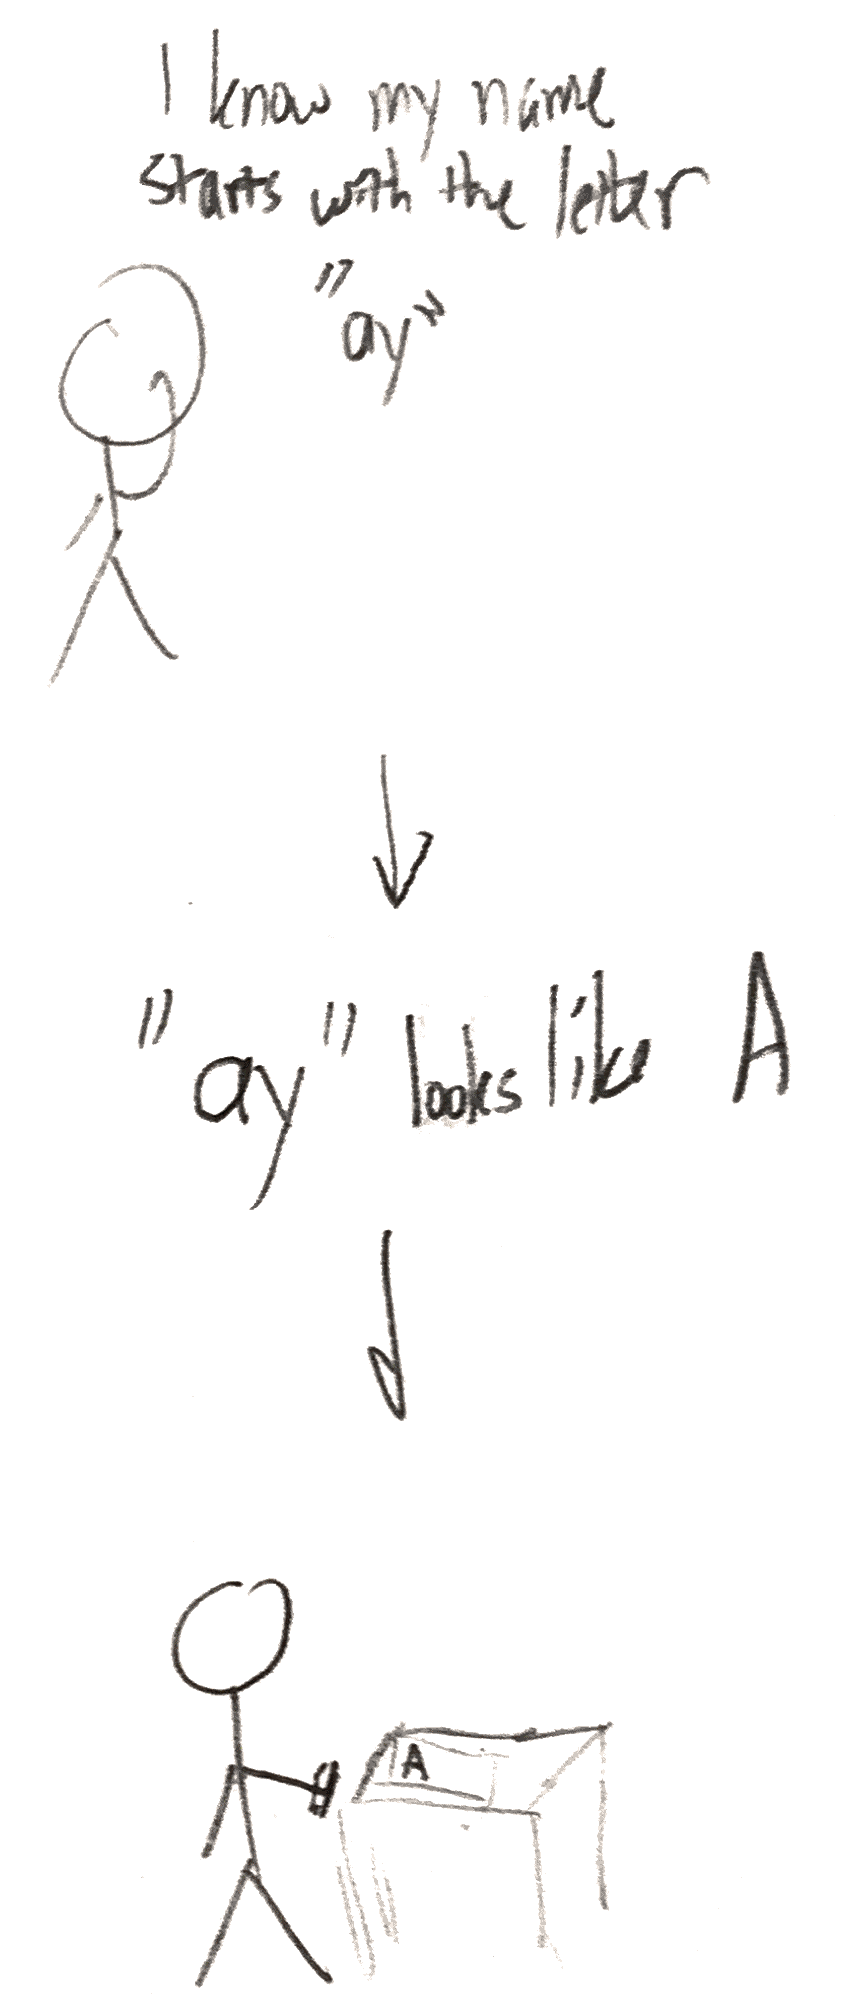 I know my name
starts with the letter
"ay"
"ay" looks like A
A